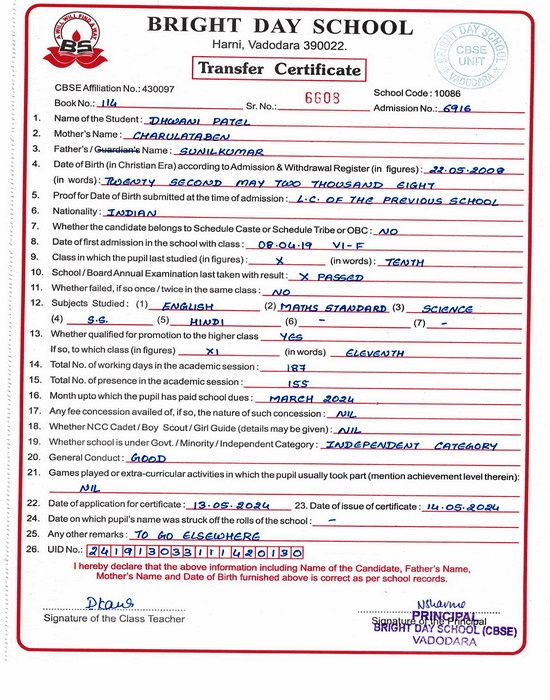 A WILL WILL FIND A WAY
BS
BRIGHT DAY SCHOOL
Harni, Vadodara 390022.
BRIGHT DAY SCHOOL
CBSE
UNIT
VADODARA
Transfer Certificate
CBSE Affiliation No.: 430097
School Code : 10086
Book No.: 114 Sr. No.: 6608 Admission No.: 6916
1. Name of the Student : DHWANI PATEL
2. Mother's Name : CHARULATABEN
3. Father's / Guardian's Name : SUNILKUMAR
4. Date of Birth (in Christian Era) according to Admission & Withdrawal Register (in figures) : 22.05.2008
(in words) : TWENTY SECOND MAY TWO THOUSAND EIGHT
5. Proof for Date of Birth submitted at the time of admission : L.C. OF THE PREVIOUS SCHOOL
6. Nationality : INDIAN
7. Whether the candidate belongs to Schedule Caste or Schedule Tribe or OBC : NO
8. Date of first admission in the school with class : 08.04.19 VI-F
9. Class in which the pupil last studied (in figures) : X (in words) : TENTH
10. School / Board Annual Examination last taken with result : X PASSED
11. Whether failed, if so once / twice in the same class : NO
12. Subjects Studied : (1) ENGLISH (2) MATHS STANDARD (3) SCIENCE
(4) S.S. (5) HINDI (6) - (7) -
13. Whether qualified for promotion to the higher class YES
If so, to which class (in figures) XI (in words) ELEVENTH
14. Total No. of working days in the academic session : 187
15. Total No. of presence in the academic session : 155
16. Month upto which the pupil has paid school dues : MARCH 2024
17. Any fee concession availed of, if so, the nature of such concession : NIL
18. Whether NCC Cadet / Boy Scout / Girl Guide (details may be given) : NIL
19. Whether school is under Govt. / Minority / Independent Category : INDEPENDENT CATEGORY
20. General Conduct : GOOD
21. Games played or extra-curricular activities in which the pupil usually took part (mention achievement level therein) :
NIL
22. Date of application for certificate : 13.05.2024 23. Date of issue of certificate : 14.05.2024
24. Date on which pupil's name was struck off the rolls of the school : -
25. Any other remarks : TO GO ELSEWHERE
26. UID No.: 241913033111420130
I hereby declare that the above information including Name of the Candidate, Father's Name,
Mother's Name and Date of Birth furnished above is correct as per school records.
Signature of the Class Teacher
Signature of the Principal
PRINCIPAL
BRIGHT DAY SCHOOL (CBSE)
VADODARA